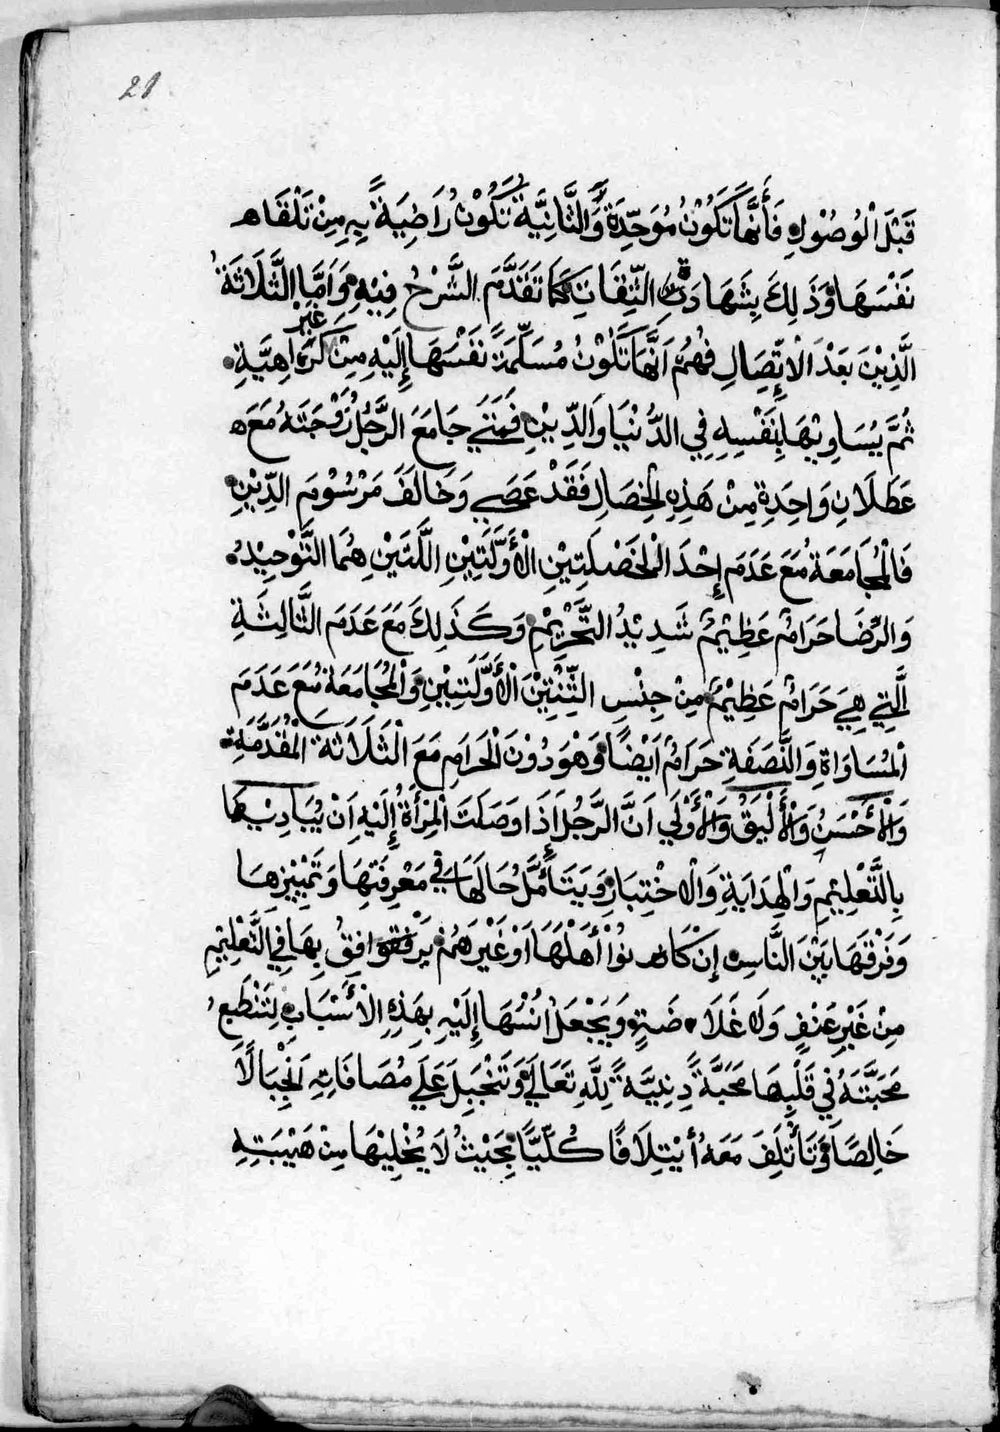 21
قَبْلَ الْوُصُوْلِ فَأَنَّهَا تَكُوْنُ مُوَحِّدَةً وَالثَّانِيَّةُ تَكُوْنُ رَاضِيَةً بِهِ مِنْ تَلْقَاء
نَفْسَهَا وَذَلِكَ بِشَهَادَت الثِّقَاتِ كَمَا تَقَدَّمَ الشَّرْحُ فِيْهِ وَاَمَّا الثَّلَاثَةُ
الَّذِيْنَ بَعْدَ الْاتِّصَالِ فَهُمُ اَنَّهَا تَكُوْنُ مُسَلِّمَةً نَفْسَهَا إِلَيْهِ مِنْ غَيْرِ كَرَاهِيَّةِ
ثُمَّ يُسَاوِيْهَا بِنَفْسِهِ فِي الدُّنْيَا وَالدِّيْنِ فَمَتَي جَامَعَ الرَّجُلُ زَوْجَتَهُ مَعَ
عَطَلَانِ وَاحِدَةٍ مِنْ هَذِهِ الْخِصَالِ فَقَدْ عَصَي وَخَالَفَ مَرْسُوْمَ الدِّيْنِ
فَالْمُجَامَعَةُ مَعَ عَدَمِ إِحْدَ الْخَصْلَتَيْنِ الْأَوَّلَتَيْنِ اللَّتَيْنِ هُمَا التَّوْحِيْدُ
وَالرِّضَا حَرَامٌ عَظِيْمٌ شَدِيْدُ التَّحْرِيْمِ وَكَذَلِكَ مَعَ عَدَمِ الثَّالِثَةِ
الَّتِي هِيَ حَرَامٌ عَظِيْمٌ مِنْ جِنْسِ الثِّنْتَيْنِ الْأَوَّلَتَيْنِ وَالْمُجَامَعَةُ مَعَ عَدَمِ
الْمُسَاوَاةِ وَالنَّصَفَةِ حَرَامٌ اَيْضًا وَهْوَ دُوْنَ الْحَرَامِ مَعَ الْثَلَاثَةِ الْمُقَدَّمَةِ
وَالْأَحْسَنُ وَالْأَلْيَقُ وَالْأَوْلَي اَنَّ الرَّجُلَ اَذَا وَصَلَتَ الْمِرْأَةُ إِلَيْهِ اَنْ يُبَادِيْهَا
بِالتَّعْلِيْمِ وَالْهِدَايَةِ وَالْاخْتِبَارِ وَيَتَأَمَّلُ حَالَهَا فِي مَعْرِفَتِهَا وَتَمْيِيْزِهَا
وَفَرْقِهَا بَيْنَ النَّاسِ إِنْ كَانُوْا أَهْلَهَا اَوْ غَيْرَهُمْ يَرْفَقُ بِهَا فِي التَّعْلِيْمِ
مِنْ غَيْرِ عَنْفٍ وَلَا غَلَاضَةٍ وَيَجْعَلُ اُنْسُهَا إِلَيْهِ بِهَذِهِ الْأَسْبَابِ لِتَنْطَبِعُ
مَحَبَّتَهُ فِي قَلْبِهَا مَحَبَّةً دِنِيَّةً لِلَّهِ تَعَالَي وَتَنْجَبِلَ عَلَي مُصَافَاتِهِ اَنْجِبَالًا
خَالِصًا وَتَأْتَلِفَ مَعَهُ أَيْتِلَافًا كُلِّيًّا بِحَيْثُ لَا يُخْلِيْهَا مِنْ هَيْبَتِهِ